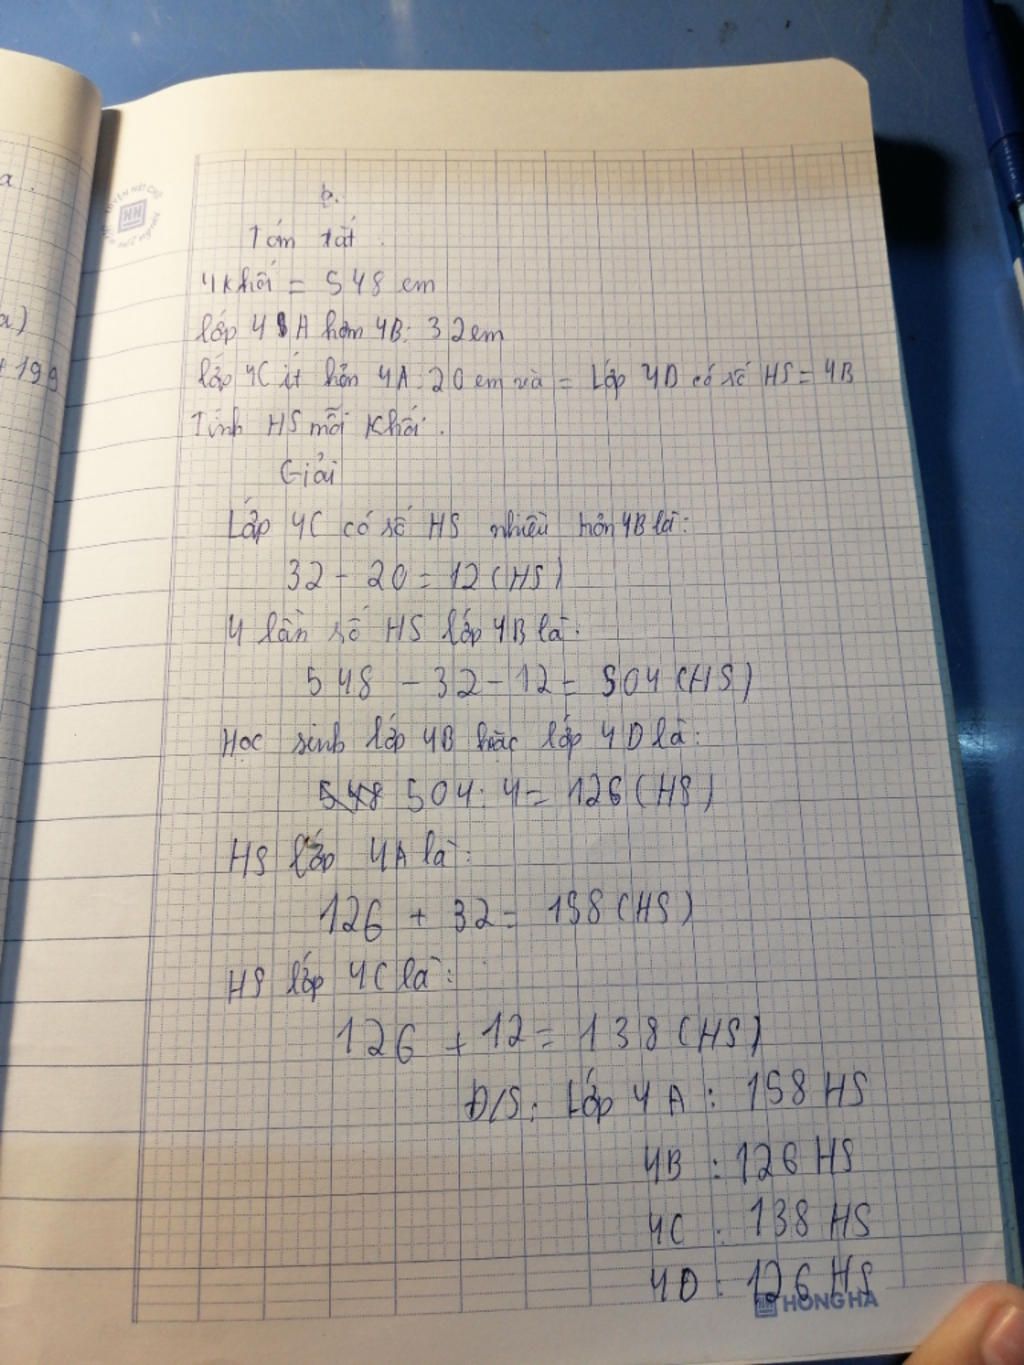 a.
a)
+ 199
Tóm tắt.
4 khối = 548 em
lớp 4A hơn 4B: 32 em
lớp 4C ít hơn 4A: 20 em và = Lớp 4D có số HS = 4B
Tính HS mỗi khối.
Giải
Lớp 4C có số HS nhiều hơn 4B là:
32 - 20 = 12 (HS)
4 lần số HS lớp 4B là:
548 - 32 - 12 = 504 (HS)
Học sinh lớp 4B hoặc lớp 4D là:
548 504 : 4 = 126 (HS)
HS lớp 4A là:
126 + 32 = 158 (HS)
HS lớp 4C là:
126 + 12 = 138 (HS)
Đ/S: Lớp 4A : 158 HS
4B : 126 HS
4C : 138 HS
4D : 126 HS
HONG HA